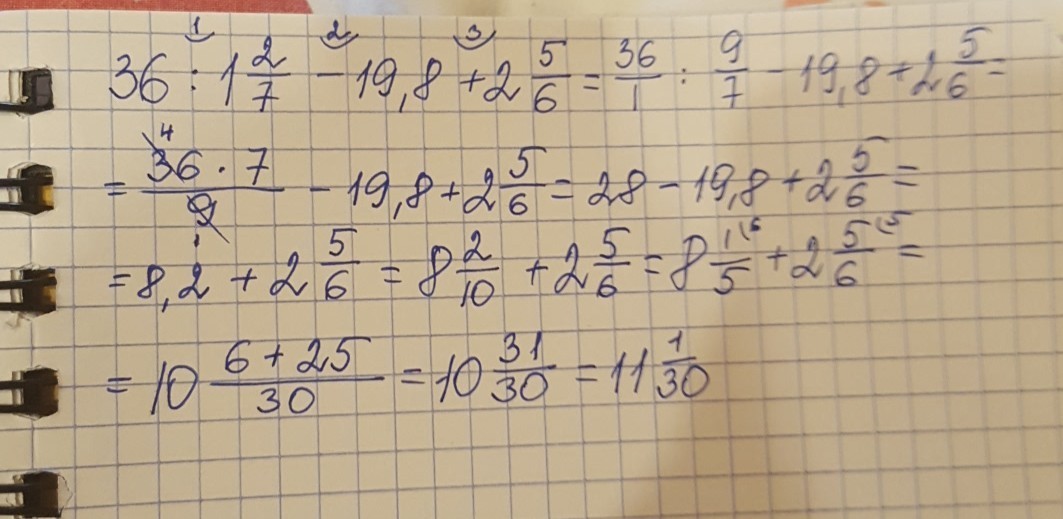 1 2 3
36 : 1 2/7 - 19,8 + 2 5/6 = 36/1 : 9/7 - 19,8 + 2 5/6 =
= 36 · 7/9 - 19,8 + 2 5/6 = 28 - 19,8 + 2 5/6 =
= 8,2 + 2 5/6 = 8 2/10 + 2 5/6 = 8 1\6/5 + 2 5\5/6 =
= 10 6+25/30 = 10 31/30 = 11 1/30